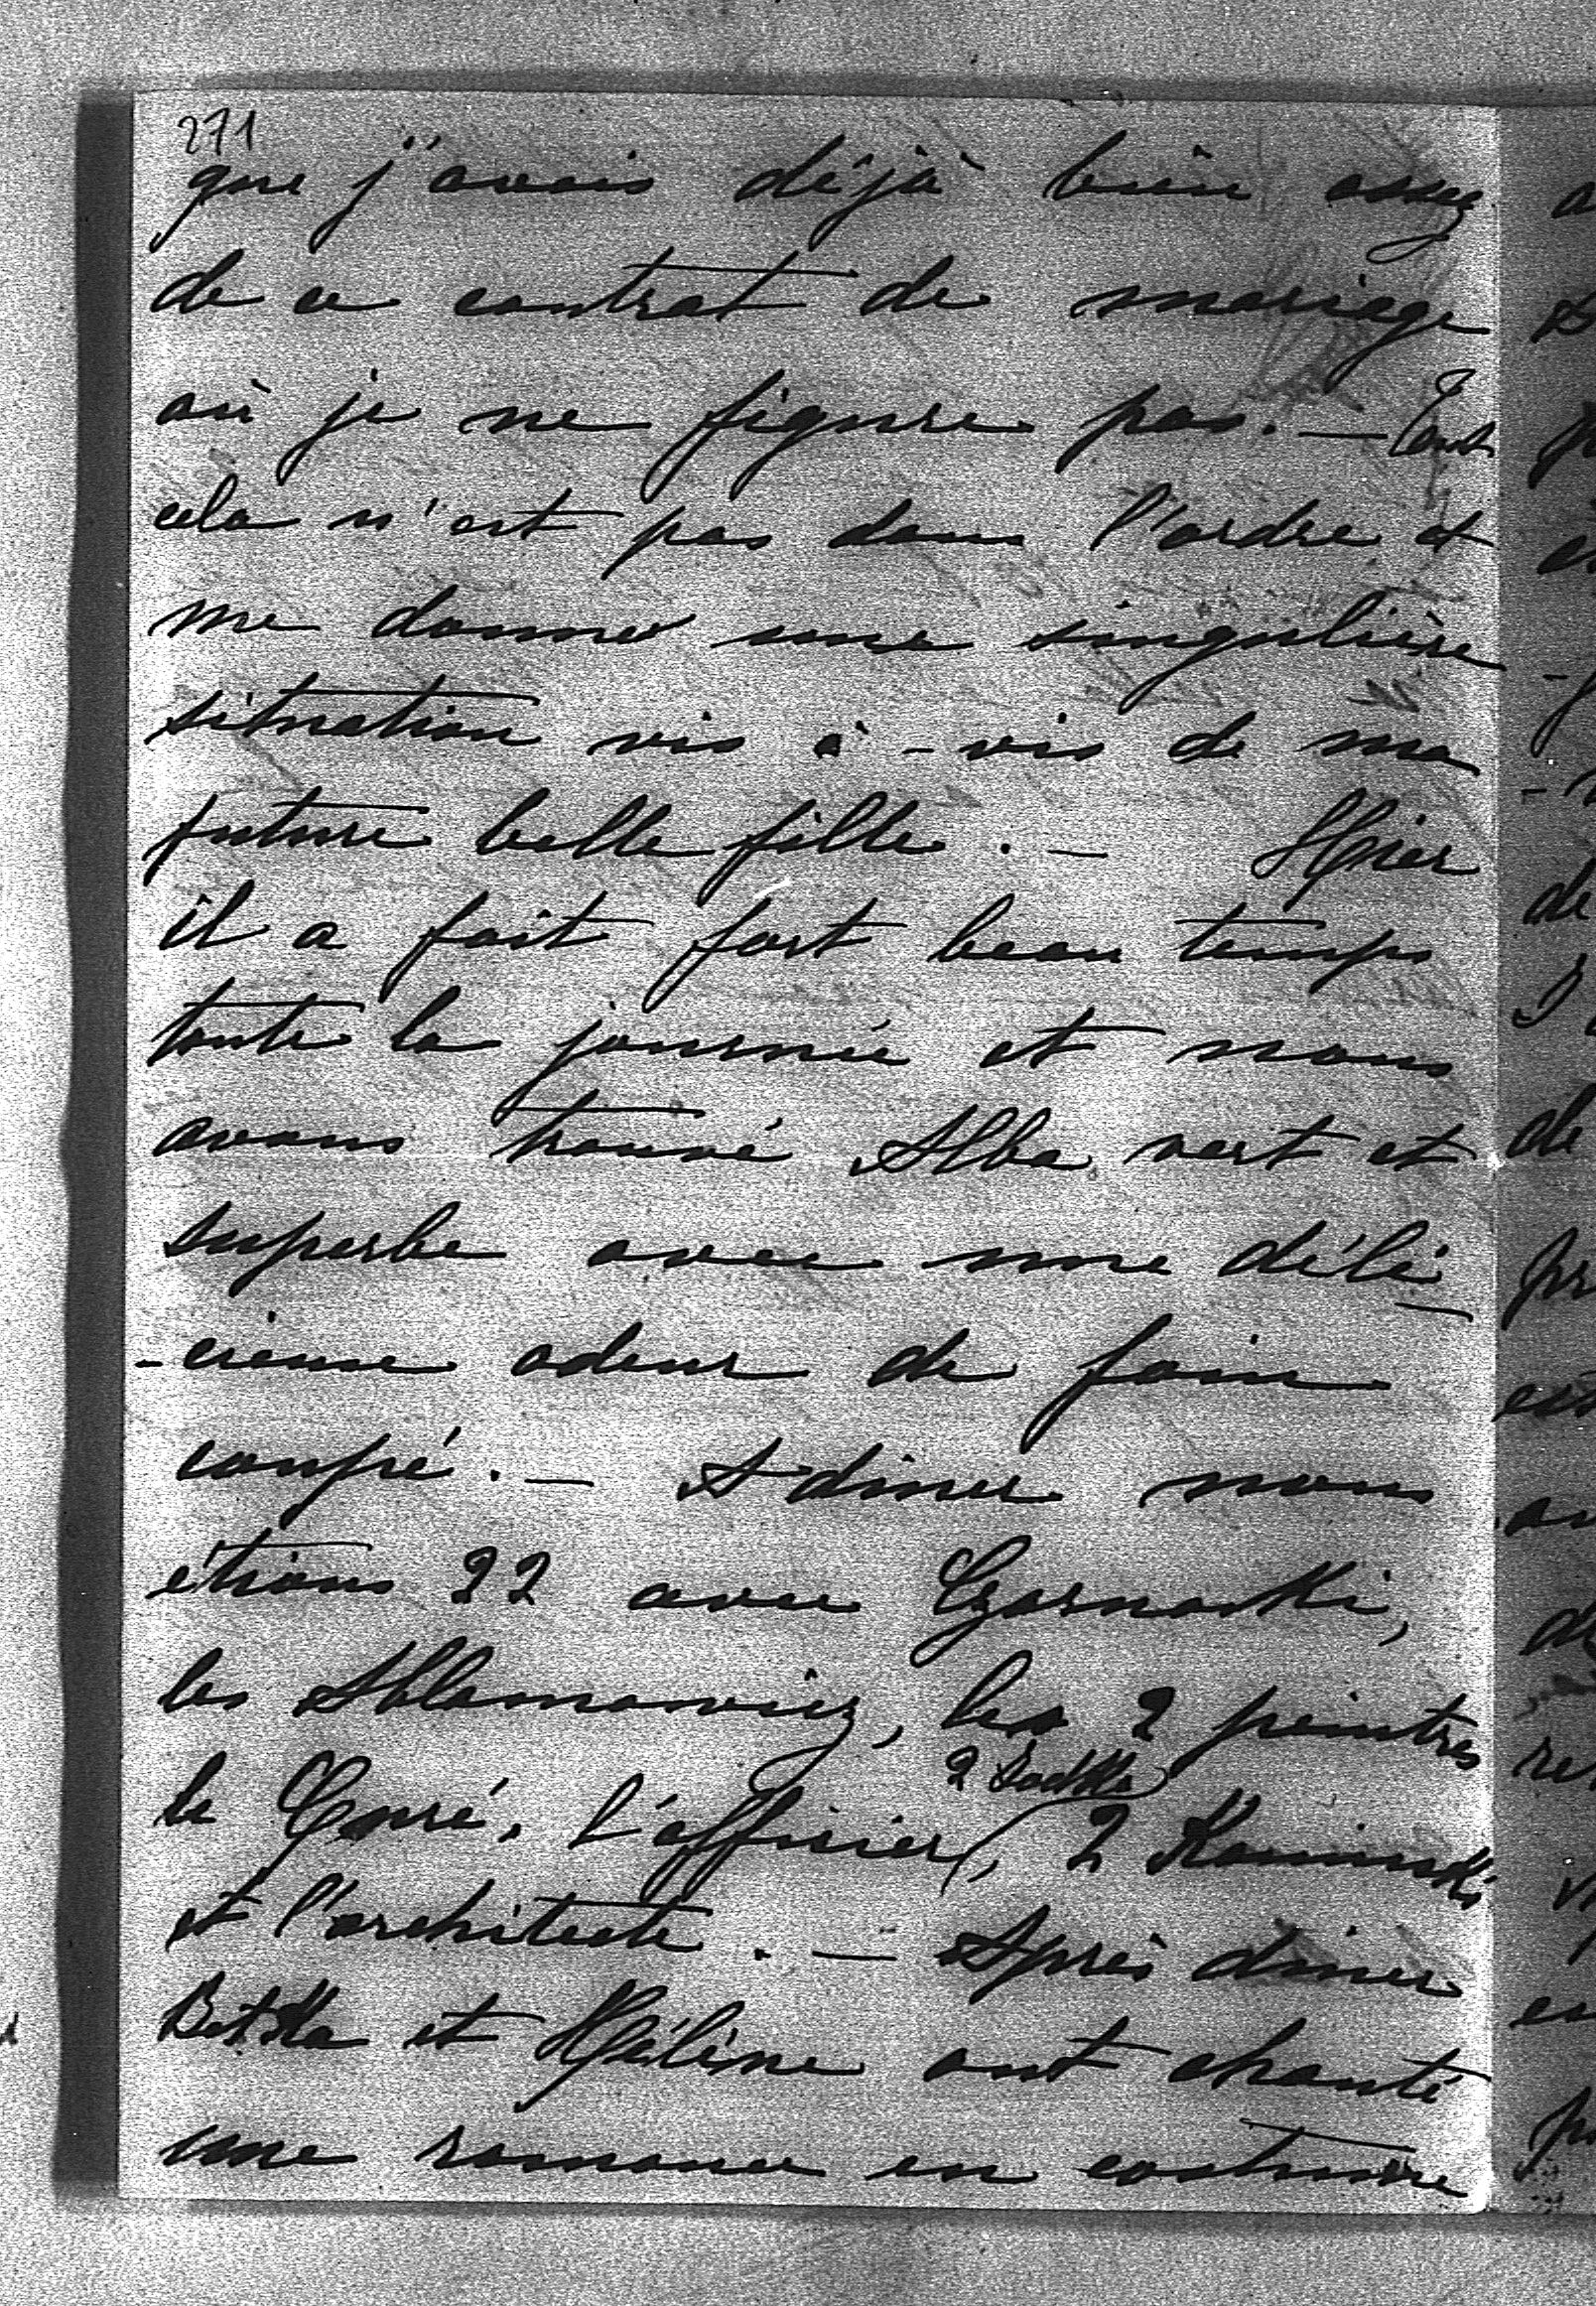 271
que j'avais déjà bien assez
de ce contrat de mariage
où je ne figure pas. — Tout
cela n'est pas dans l'ordre et
me donne une singulière
situation vis à-vis de ma
future belle fille. — Hier
il a fait fort beau temps
toute la journée et nous
avons trouvé Alba vert et
superbe avec une déli-
-cieuse odeur de foin
coupé. — A diner nous
étions 22 avec Czarnocki,
les Ablamowicz, les 2 peintres
le Curé, l'officier, 2 Kaminski
et l'architecte. — Après diner
Bichka et Hélène ont chanté
une romance en costume